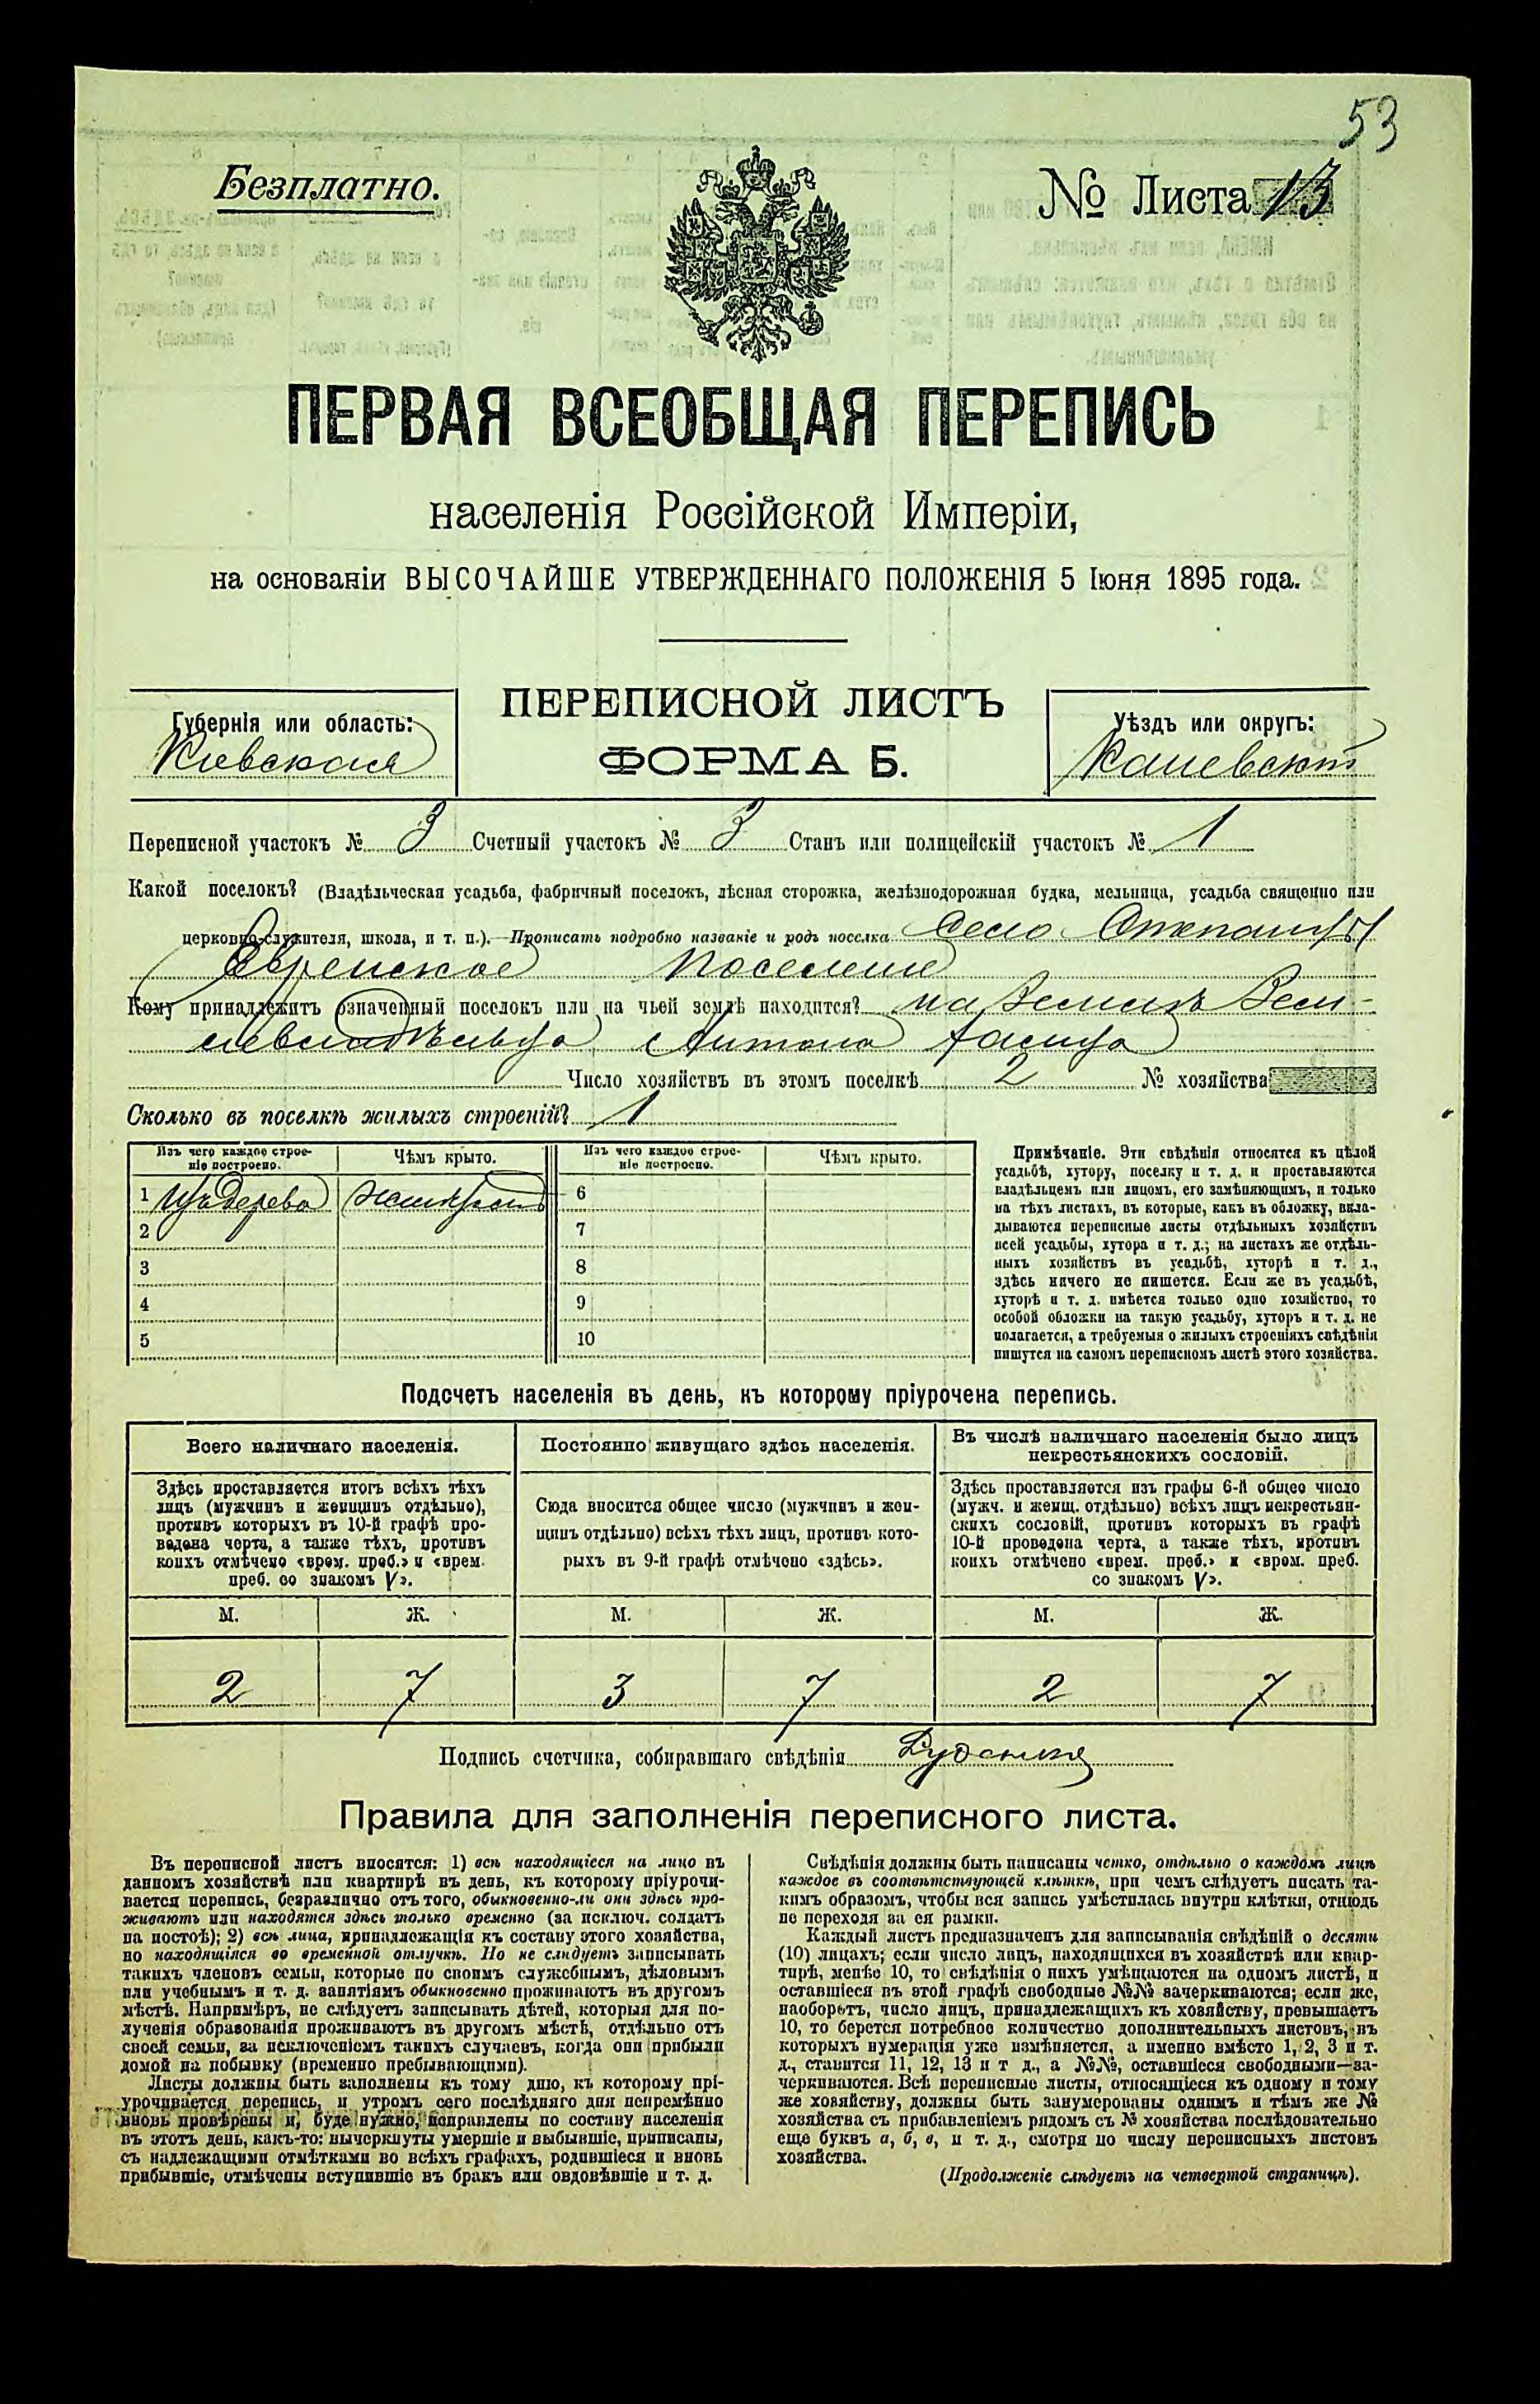 53
Безплатно.
№ Листа 13
ПЕРВАЯ ВСЕОБЩАЯ ПЕРЕПИСЬ
населенія Россійской Имперіи,
на основаніи ВЫСОЧАЙШЕ УТВЕРЖДЕННАГО ПОЛОЖЕНІЯ 5 Іюня 1895 года.
Губернія или область:
Кіевская
ПЕРЕПИСНОЙ ЛИСТЪ
ФОРМА Б.
Уѣздъ или округъ:
Каневскій
Переписной участокъ № 3 Счетный участокъ № 3 Станъ или полицейскій участокъ № 1
Какой поселокъ? (Владѣльческая усадьба, фабричный поселокъ, лѣсная сторожка, желѣзнодорожная будка, мельница, усадьба священно или
церковно-служителя, школа, и т. п.).—Прописать подробно названіе и родъ поселка Село
Еврейское поселеніе
Кому принадлежитъ означенный поселокъ или на чьей землѣ находится? на землѣ Зем-
левладѣльца Антона
Число хозяйствъ въ этомъ поселкѣ 2 № хозяйства
Сколько въ поселкѣ жилыхъ строеній? 1
Изъ чего каждое строе-
ніе построено.
Чѣмъ крыто.
Изъ чего каждое строе-
ніе построено.
Чѣмъ крыто.
1 Изъ дерева
6
2
7
3
8
4
9
5
10
Примѣчаніе. Эти свѣдѣнія относятся къ цѣлой
усадьбѣ, хутору, поселку и т. д. и проставляются
владѣльцемъ или лицомъ, его замѣняющимъ, и только
на тѣхъ листахъ, въ которые, какъ въ обложку, вкла-
дываются переписные листы отдѣльныхъ хозяйствъ
всей усадьбы, хутора и т. д.; на листахъ же отдѣль-
ныхъ хозяйствъ въ усадьбѣ, хуторѣ и т. д.,
здѣсь ничего не пишется. Если же въ усадьбѣ,
хуторѣ и т. д. имѣется только одно хозяйство, то
особой обложки на такую усадьбу, хуторъ и т. д. не
полагается, а требуемыя о жилыхъ строеніяхъ свѣдѣнія
пишутся на самомъ переписномъ листѣ этого хозяйства.
Подсчетъ населенія въ день, къ которому пріурочена перепись.
Всего наличнаго населенія.
Здѣсь проставляется итогъ всѣхъ тѣхъ
лицъ (мужчинъ и женщинъ отдѣльно),
противъ которыхъ въ 10-й графѣ про-
ведена черта, а также тѣхъ, противъ
коихъ отмѣчено «врем. преб.» и «врем.
преб. со знакомъ V».
М. Ж.
2 7
Постоянно живущаго здѣсь населенія.
Сюда вносится общее число (мужчинъ и жен-
щинъ отдѣльно) всѣхъ тѣхъ лицъ, противъ кото-
рыхъ въ 9-й графѣ отмѣчено «здѣсь».
М. Ж.
3 7
Въ числѣ наличнаго населенія было лицъ
некрестьянскихъ сословій.
Здѣсь проставляется изъ графы 6-й общее число
(мужч. и женщ. отдѣльно) всѣхъ лицъ некрестьян-
скихъ сословій, противъ которыхъ въ графѣ
10-й проведена черта, а также тѣхъ, противъ
коихъ отмѣчено «врем. преб.» и «врем. преб.
со знакомъ V».
М. Ж.
2 7
Подпись счетчика, собиравшаго свѣдѣнія
Правила для заполненія переписного листа.
Въ переписной листъ вносятся: 1) всѣ находящіеся на лицо въ
данномъ хозяйствѣ или квартирѣ въ день, къ которому пріурочи-
вается перепись, безразлично отъ того, обыкновенно-ли они здѣсь про-
живаютъ или находятся здѣсь только временно (за исключ. солдатъ
на постоѣ); 2) всѣ лица, принадлежащія къ составу этого хозяйства,
но находящіяся во временной отлучкѣ. Но не слѣдуетъ записывать
такихъ членовъ семьи, которые по своимъ служебнымъ, дѣловымъ
или учебнымъ и т. д. занятіямъ обыкновенно проживаютъ въ другомъ
мѣстѣ. Напримѣръ, не слѣдуетъ записывать дѣтей, которыя для по-
лученія образованія проживаютъ въ другомъ мѣстѣ, отдѣльно отъ
своей семьи, за исключеніемъ такихъ случаевъ, когда они прибыли
домой на побывку (временно пребывающими).
Листы должны быть заполнены къ тому дню, къ которому прі-
урочивается перепись, и утромъ сего послѣдняго дня непремѣнно
вновь провѣрены и, буде нужно, исправлены по составу населенія
въ этотъ день, какъ-то: вычеркнуты умершіе и выбывшіе, приписаны,
съ надлежащими отмѣтками во всѣхъ графахъ, родившіеся и вновь
прибывшіе, отмѣчены вступившіе въ бракъ или овдовѣвшіе и т. д.
Свѣдѣнія должны быть написаны четко, отдѣльно о каждомъ лицѣ
каждое въ соотвѣтствующей клѣткѣ, при чемъ слѣдуетъ писать та-
кимъ образомъ, чтобы вся запись умѣстилась внутри клѣтки, отнюдь
не переходя за ея рамки.
Каждый листъ предназначенъ для записыванія свѣдѣній о десяти
(10) лицахъ; если число лицъ, находящихся въ хозяйствѣ или квар-
тирѣ, менѣе 10, то свѣдѣнія о нихъ умѣщаются на одномъ листѣ, и
оставшіеся въ этой графѣ свободные №№ зачеркиваются; если же,
наоборотъ, число лицъ, принадлежащихъ къ хозяйству, превышаетъ
10, то берется потребное количество дополнительныхъ листовъ, въ
которыхъ нумерація уже измѣняется, а именно вмѣсто 1, 2, 3 и т.
д., ставится 11, 12, 13 и т д., а №№, оставшіеся свободными—за-
черкиваются. Всѣ переписные листы, относящіеся къ одному и тому
же хозяйству, должны быть занумерованы однимъ и тѣмъ же №
хозяйства съ прибавленіемъ рядомъ съ № хозяйства послѣдовательно
еще буквъ а, б, в, и т. д., смотря по числу переписныхъ листовъ
хозяйства.
(Продолженіе слѣдуетъ на четвертой страницѣ).